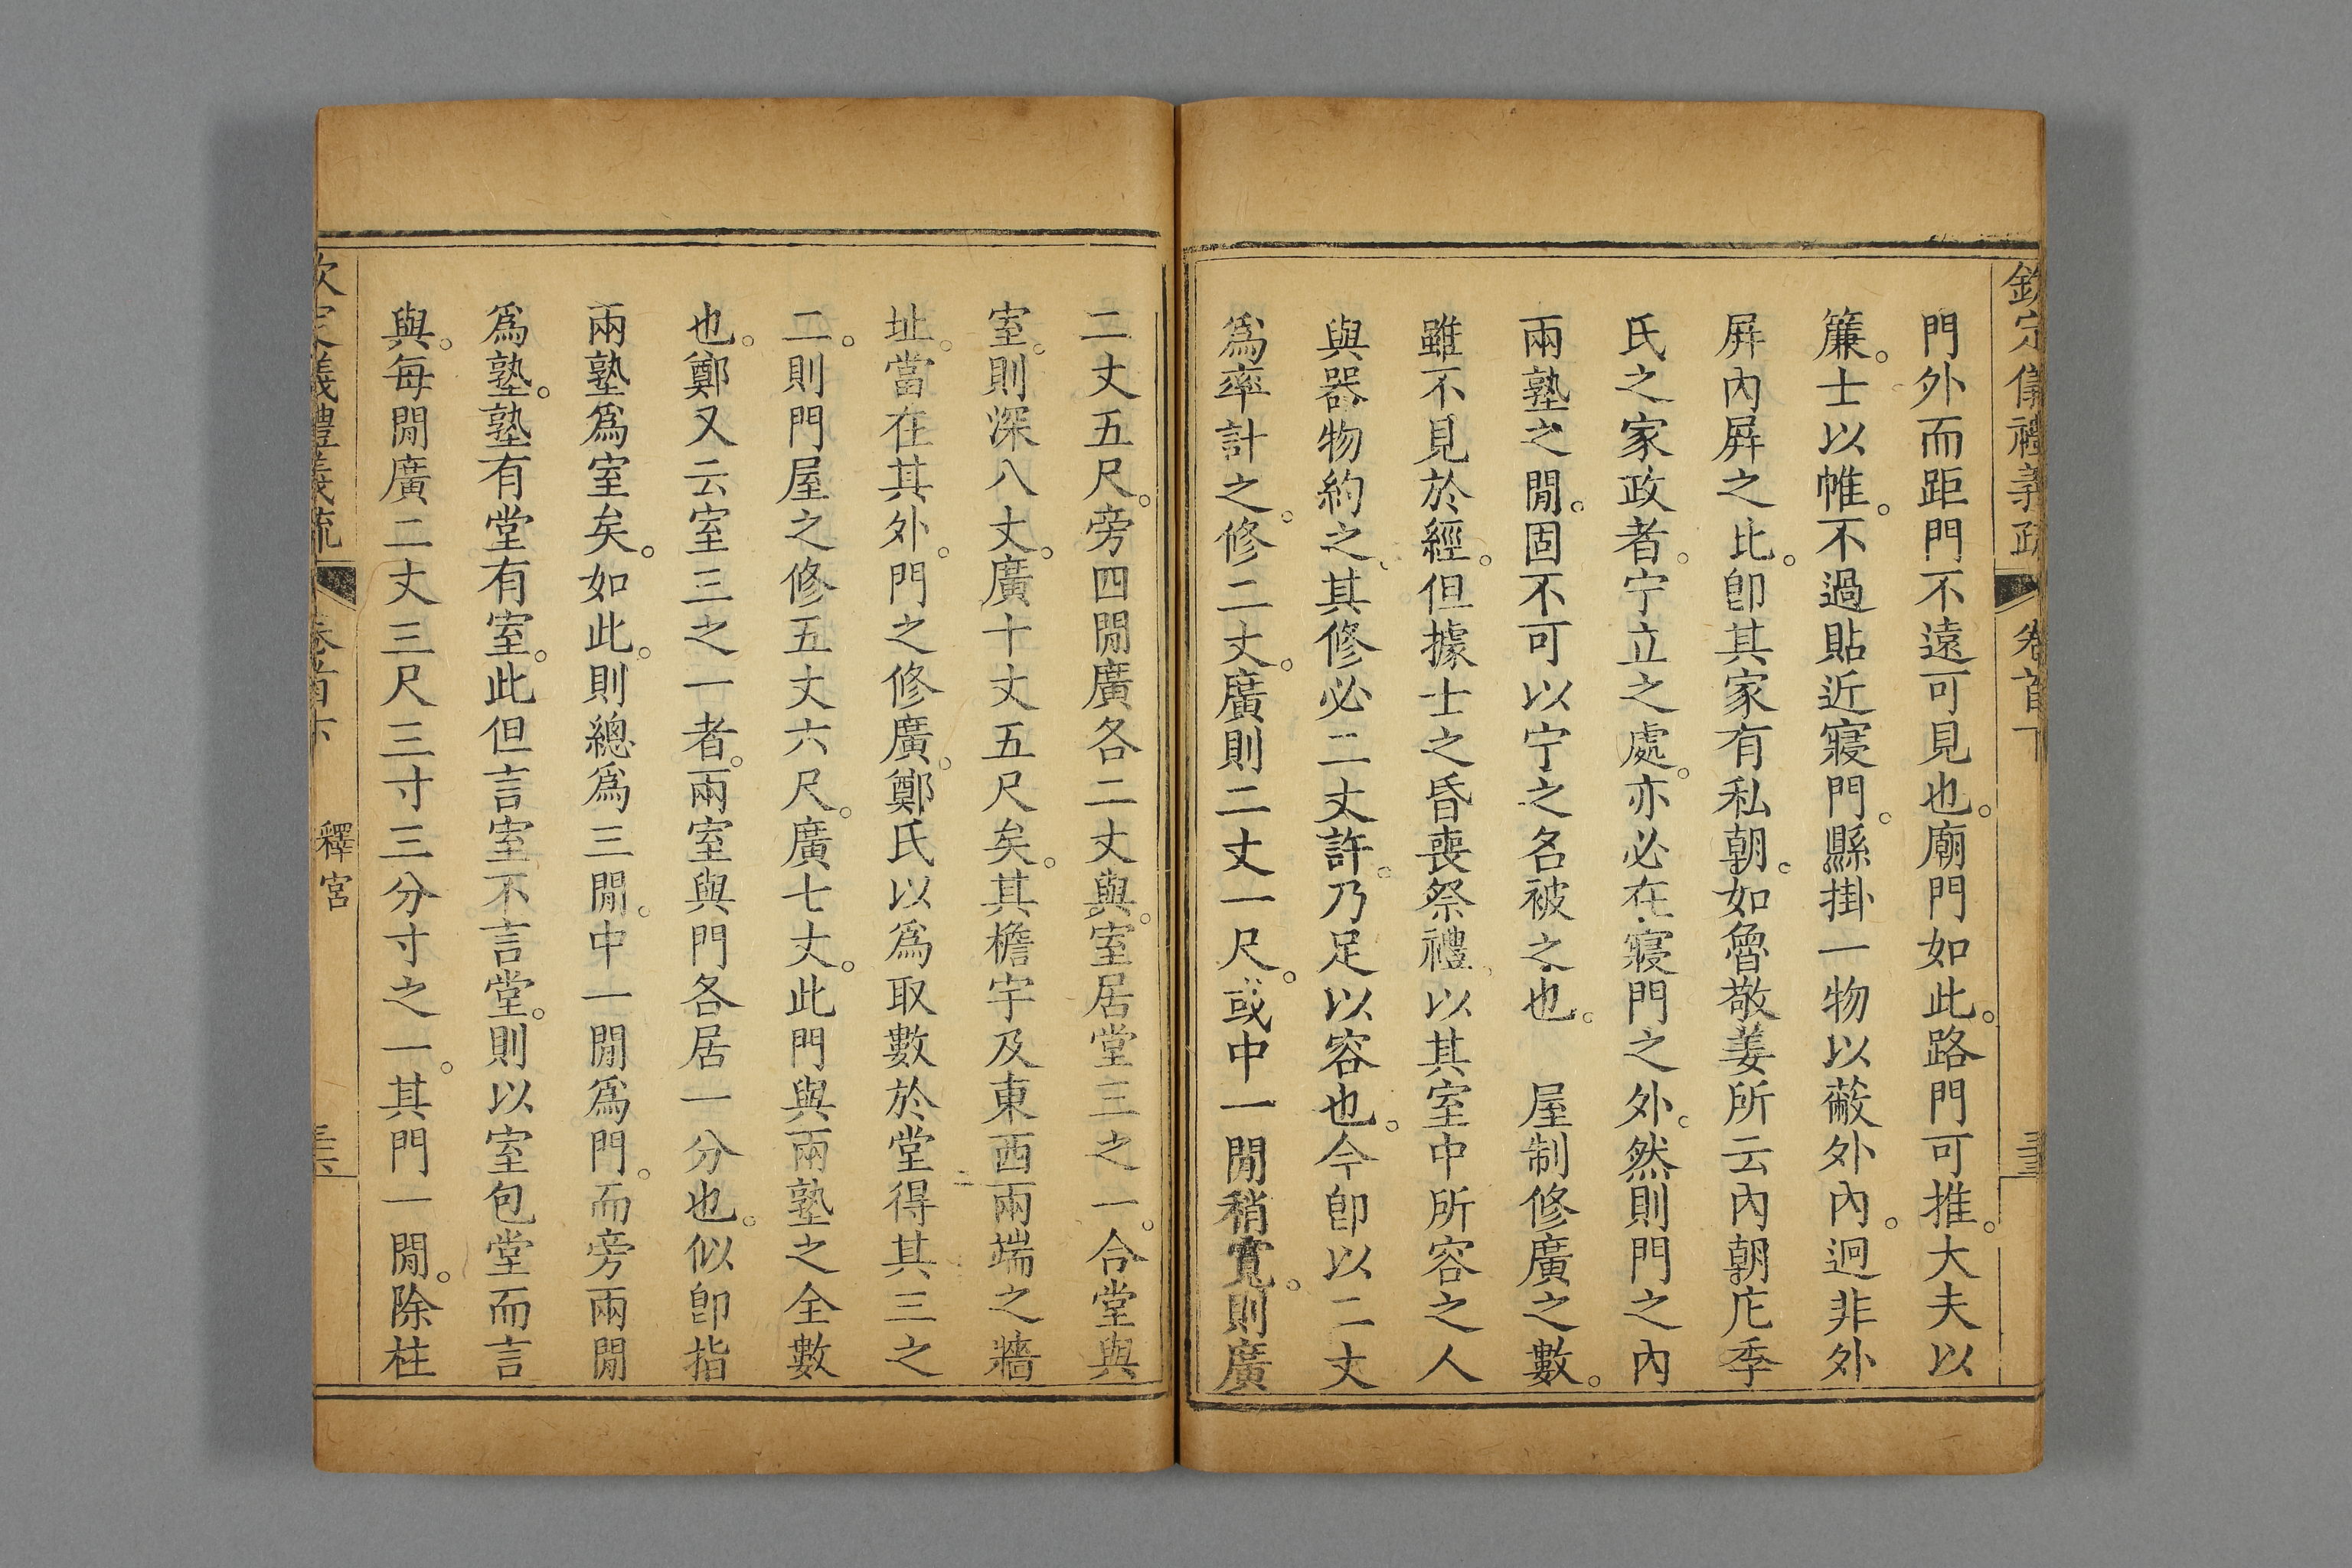 欽定儀禮義疏 卷首下
門外而距門不遠可見也。廟門如此。路門可推。大夫以
簾。士以帷。不過貼近寢門。縣掛一物以蔽外內。迥非外
屏內屏之比。卽其家有私朝。如魯敬姜所云內朝庀季
氏之家政者。宁立之處。亦必在寢門之外。然則門之內
兩塾之閒。固不可以宁之名被之也。 屋制修廣之數。
雖不見於經。但據士之昏喪祭禮、以其室中所容之人
與器物約之、其修必二丈許。乃足以容也。今卽以二丈
爲率計之。修二丈。廣則二丈一尺。或中一閒稍寬。則廣
二丈五尺。旁四閒廣各二丈與。室居堂三之一。合堂與
室。則深八丈。廣十丈五尺矣。其檐宇及東西兩端之牆
址。當在其外。門之修廣。鄭氏以爲取數於堂得其三之
二。則門屋之修五丈六尺。廣七丈。此門與兩塾之全數
也。鄭又云室三之一者。兩室與門各居一分也。似卽指
兩塾爲室矣。如此。則總爲三閒。中一閒爲門。而旁兩閒
爲塾。塾有堂有室。此但言室不言堂。則以室包堂而言
與。每閒廣二丈三尺三寸三分寸之一。其門一閒。除柱
欽定儀禮義疏 卷首下 釋宮